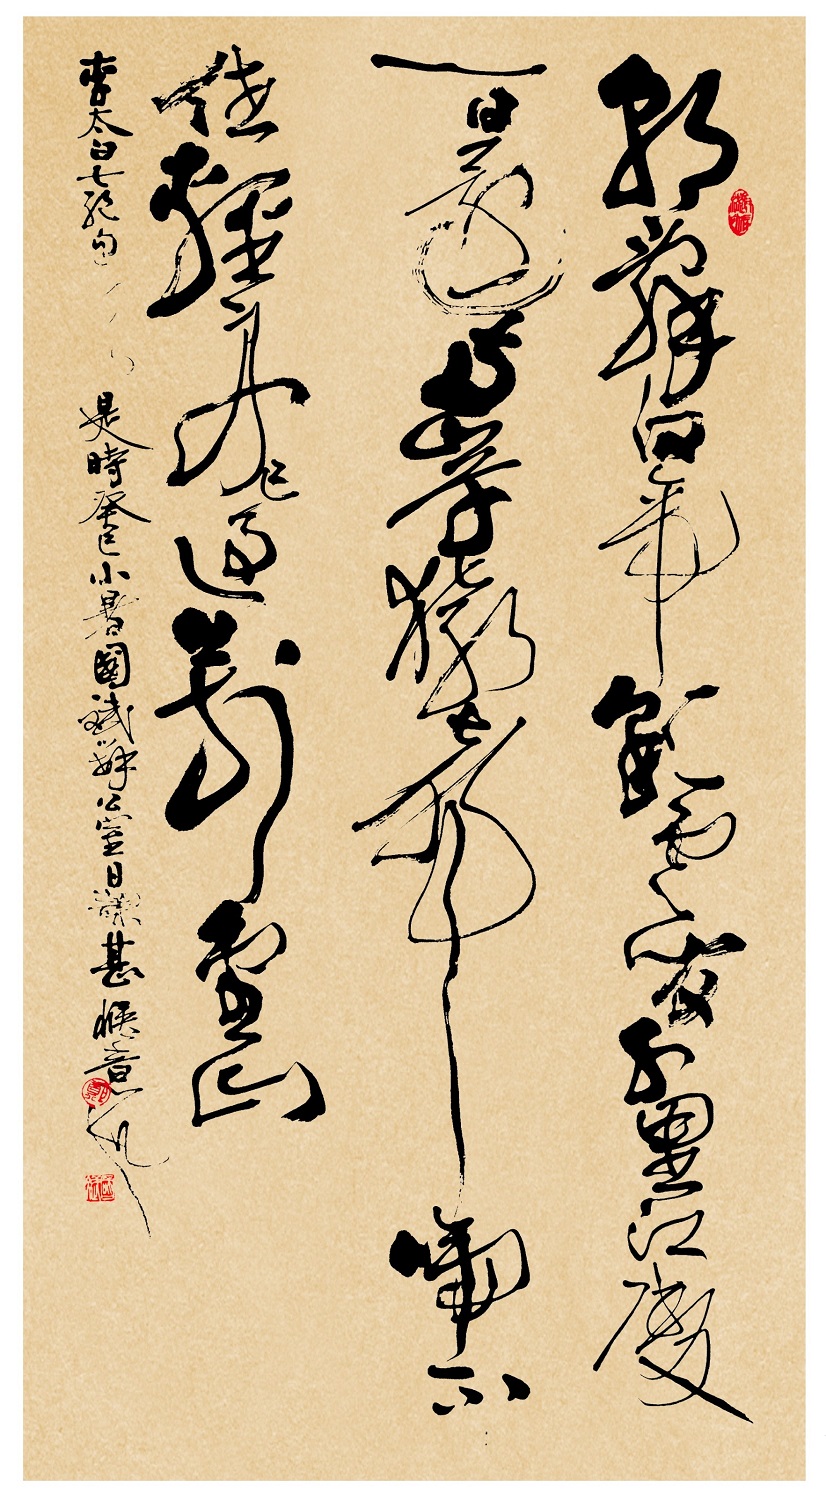 朝辭白帝彩雲間千里江陵
一日還兩岸猿聲啼不
住輕舟已過萬重山
李太白七絕句 是時癸巳小暑國斌辦公室日課甚愜意